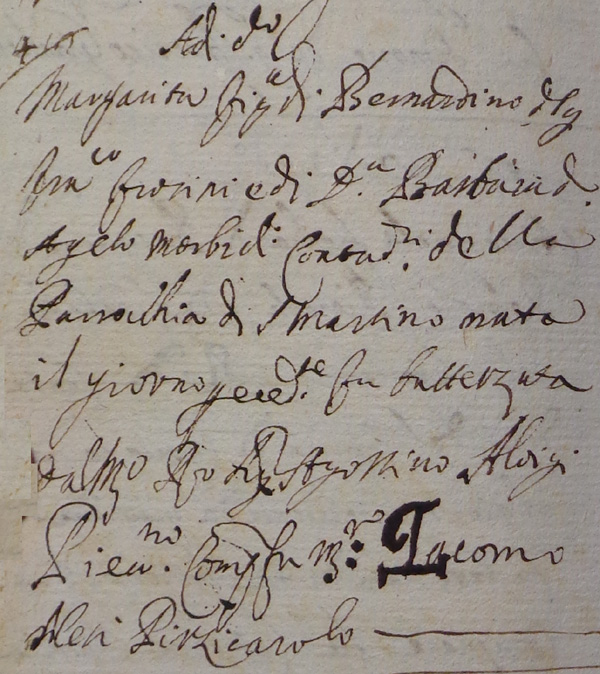 Adi. do
Margarita fig.a di Bernardino d Sg
Fran.co frosini e di D.a Barbara d.
Agelo Morbid: Contad.ni della
Parrochia di S Martino nata
il giorno preced.te fu battezzata
dal M Agostino Aloigi
Pieu.no Comp.e fu m.ro Iacomo
Neri Pizzicarolo